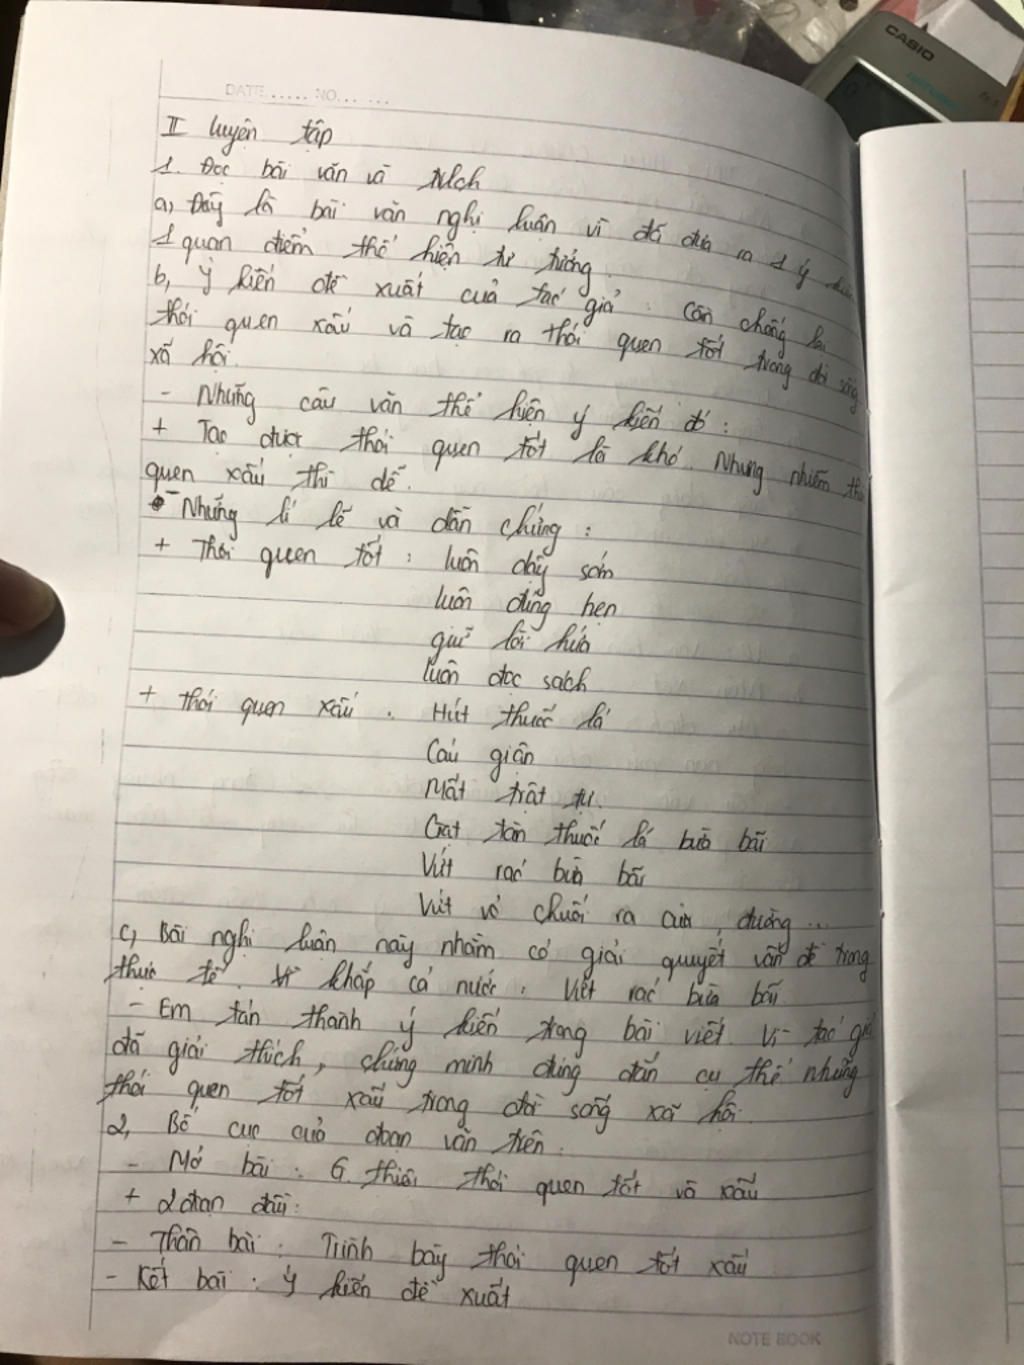 DATE...... NO... ...
CASIO
II luyện tập
1. Đọc bài văn và tlch
a, Đây là bài văn nghị luận vì đã đưa ra 1 ý kiến
1 quan điểm thể hiện tư tưởng.
b, ý kiến đề xuất của tác giả: Cần chống lại
thói quen xấu và tạo ra thói quen tốt trong đời sống
xã hội.
- Những câu văn thể hiện ý kiến đó:
+ Tạo được thói quen tốt là khó. Nhưng nhiễm thói
quen xấu thì dễ.
- Những lí lẽ và dẫn chứng:
+ Thói quen tốt: luôn dậy sớm
luôn đúng hẹn
giữ lời hứa
luôn đọc sách
+ thói quen xấu: Hút thuốc lá
Cáu giận
Mất trật tự.
Gạt tàn thuốc lá bừa bãi
Vứt rác bừa bãi
Vứt vỏ chuối ra cửa, đường...
c, Bài nghị luận này nhằm có giải quyết vấn đề trong
thực tế. khắp cả nước: Viết rác bừa bãi
- Em tán thành ý kiến trong bài viết. Vì tác giả
đã giải thích, chứng minh đúng đắn cụ thể những
thói quen tốt xấu trong đời sống xã hội.
2, Bố cục của đoạn văn trên:
- Mở bài: G.thiệu thói quen tốt và xấu
+ 2 đoạn đầu:
- Thân bài: Trình bày thói quen tốt xấu
- Kết bài: ý kiến đề xuất
NOTE BOOK